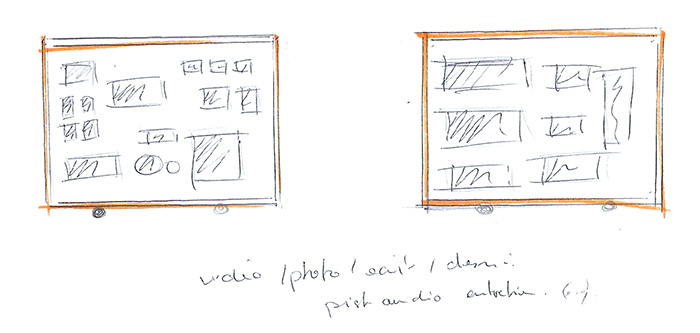 vidéo / photo / écrit / dessin
pist audio entretien. (...).